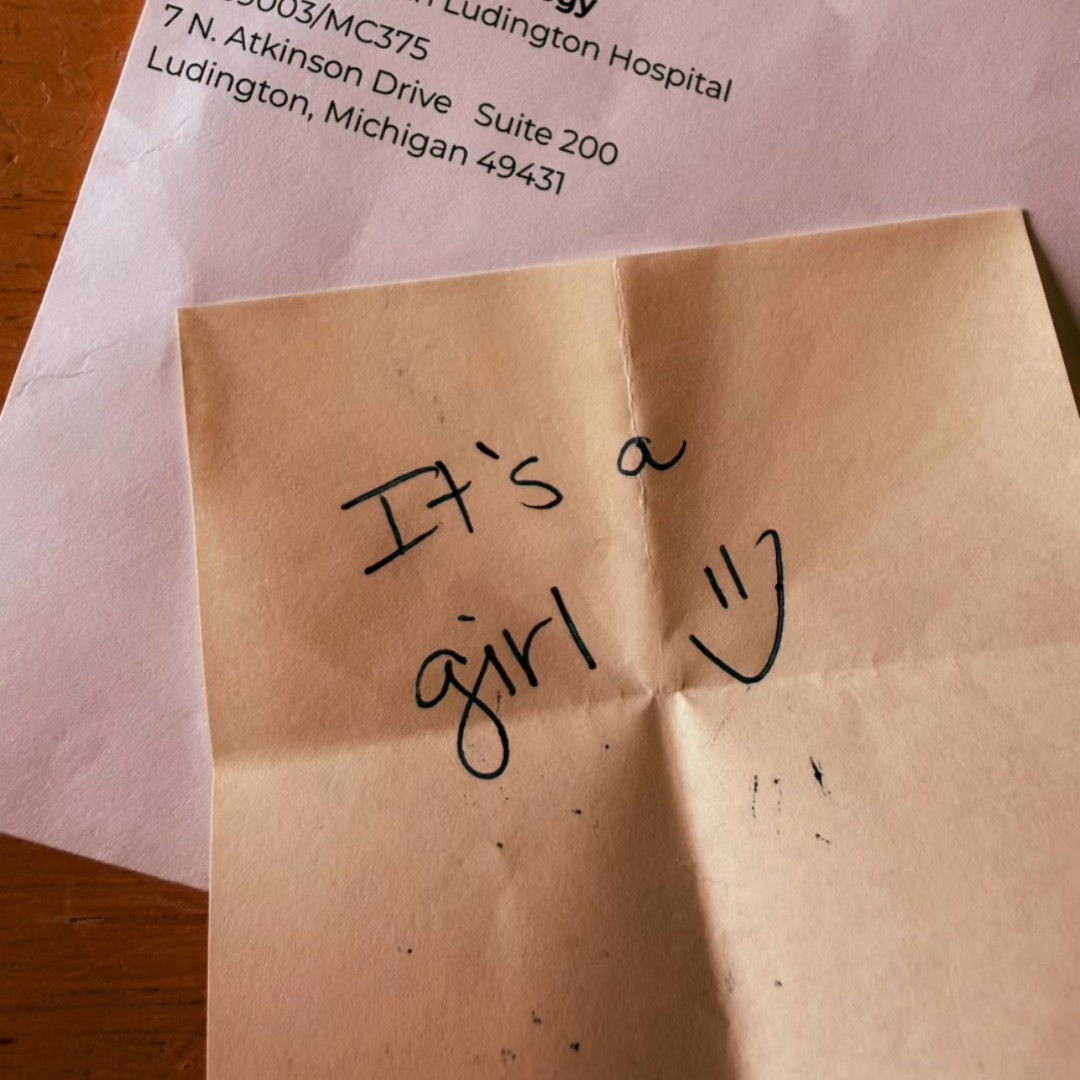 Ludington Hospital
7 N. Atkinson Drive Suite 200
Ludington, Michigan 49431
It's a
girl =)